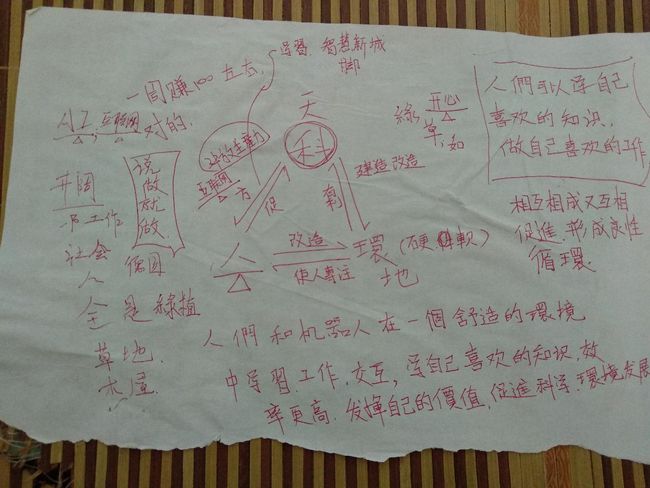 學習. 智慧新城
一周賺100立方.
AI, 互联网 对的.
天
科
互联网
方
促
創
建造改造
綠 开心
草, 如
人們可以学自己
喜欢的知识,
做自己喜欢的工作
相互相成又互相
促進. 形成良性
循環.
说
做
就
做
开阔
工作
社会
人
全是綠植
草地.
木屋.
人
改造
使人專注
環(硬 軟)
地
人們和机器人在一個舒造的環境
中学習工作, 交互, 学自己喜欢的知识, 效
率更高. 发揮自己的價值, 促進科学. 環境发展